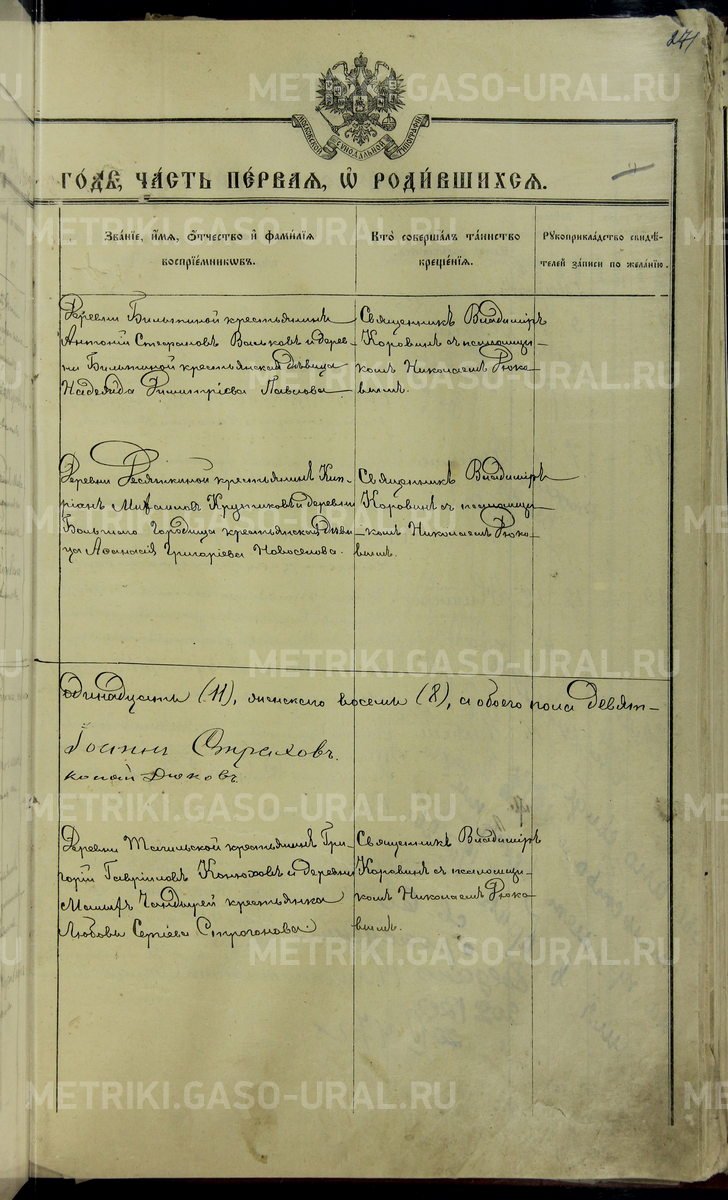 METRIKI.GASO-URAL.RU
271
МОСКОВСКОЙ СѴНОДАЛЬНОЙ ТИПОГРАФІИ
ГО́ДѢ, ЧА́СТЬ ПЕ́РВАѦ, Ѡ҆ РОДИ́ВШИХСѦ.
Зва́нїе, и҆́мѧ, ѻ҆́тчество и҆ фами́лїѧ
воспрїе́мникѡвъ.
Кто̀ соверша́лъ та́инство
креще́нїѧ.
Рꙋкоприкла́дство свидѣ́-
телей за́писи по жела́нїю.
Деревни Бильтиной крестьянинъ
Антоній Стефановъ Вальковъ и дерев-
ни Бильтиной крестьянская дѣвица
Надежда Димитріева Павлова
Священникъ Владиміръ
Коровинъ съ псаломщи-
комъ Николаемъ Дюко-
вымъ.
Деревни Десяткиной крестьянинъ Кип-
ріанъ Михаиловъ Крутиковъ и деревни
Большаго Городища крестьянская дѣви-
ца Афанасія Григоріева Новоселова.
Священникъ Владиміръ
Коровинъ съ псаломщи-
комъ Николаемъ Дюко-
вымъ.
одинадцать (11), женскаго восемь (8), а обоего пола девят-
Іоаннъ Страховъ.
Дюковъ.
Деревни Тагильской крестьянинъ Гри-
горій Гавріиловъ Конюховъ и деревни
крестьянка
Любовь Сергіева Строгонова.
Священникъ Владиміръ
Коровинъ съ псаломщи-
комъ Николаемъ Дюко-
вымъ.